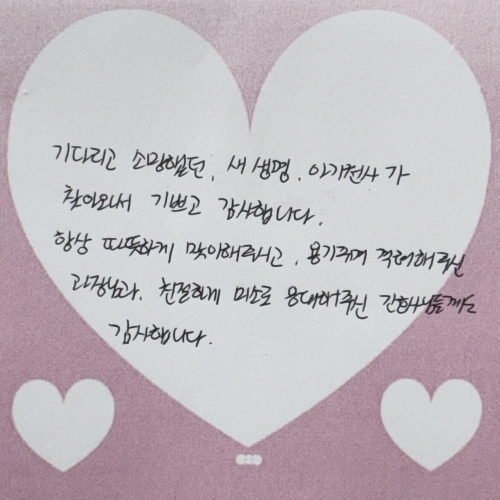 기다리고 소망했던, 새 생명, 아기천사가
찾아와서 기쁘고 감사합니다.
항상 따뜻하게 맞이해주시고, 용기주며 격려해주신
과장님과, 친절하게 미소로 응대해주신 간호사님들께도
감사합니다.